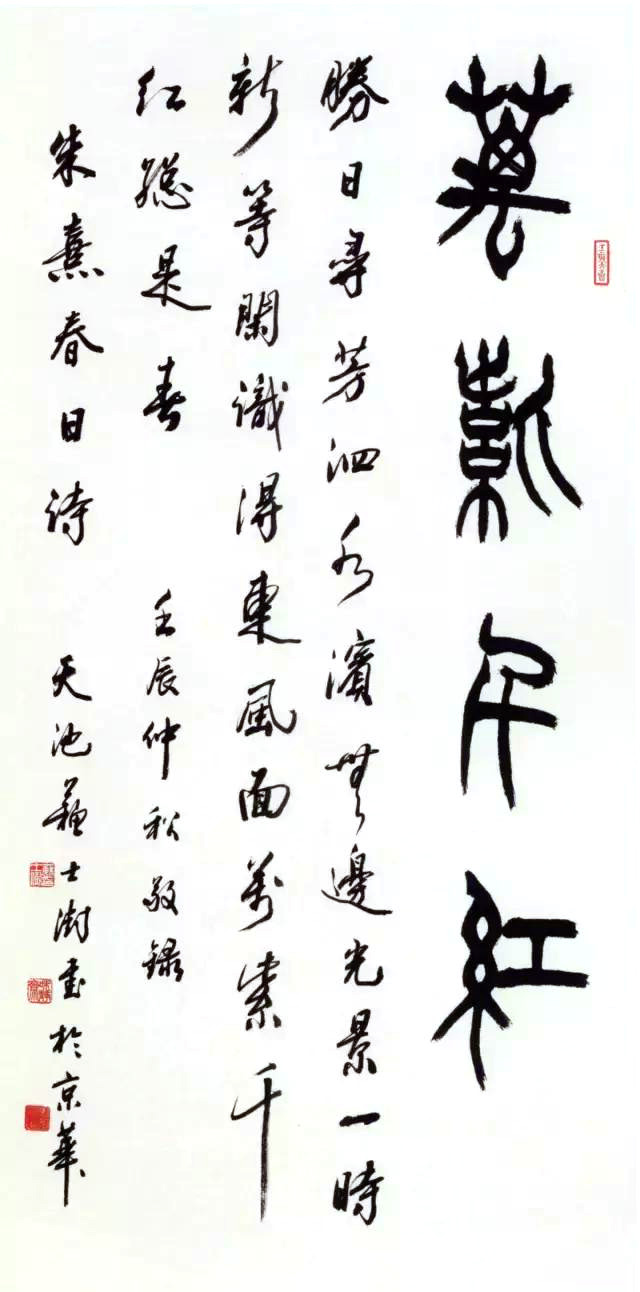 萬紫千紅
勝日尋芳泗水濱無邊光景一時
新等閑識得東風面萬紫千
紅總是春 壬辰仲秋敬録
朱熹春日詩 天池蘇士澍書於京華